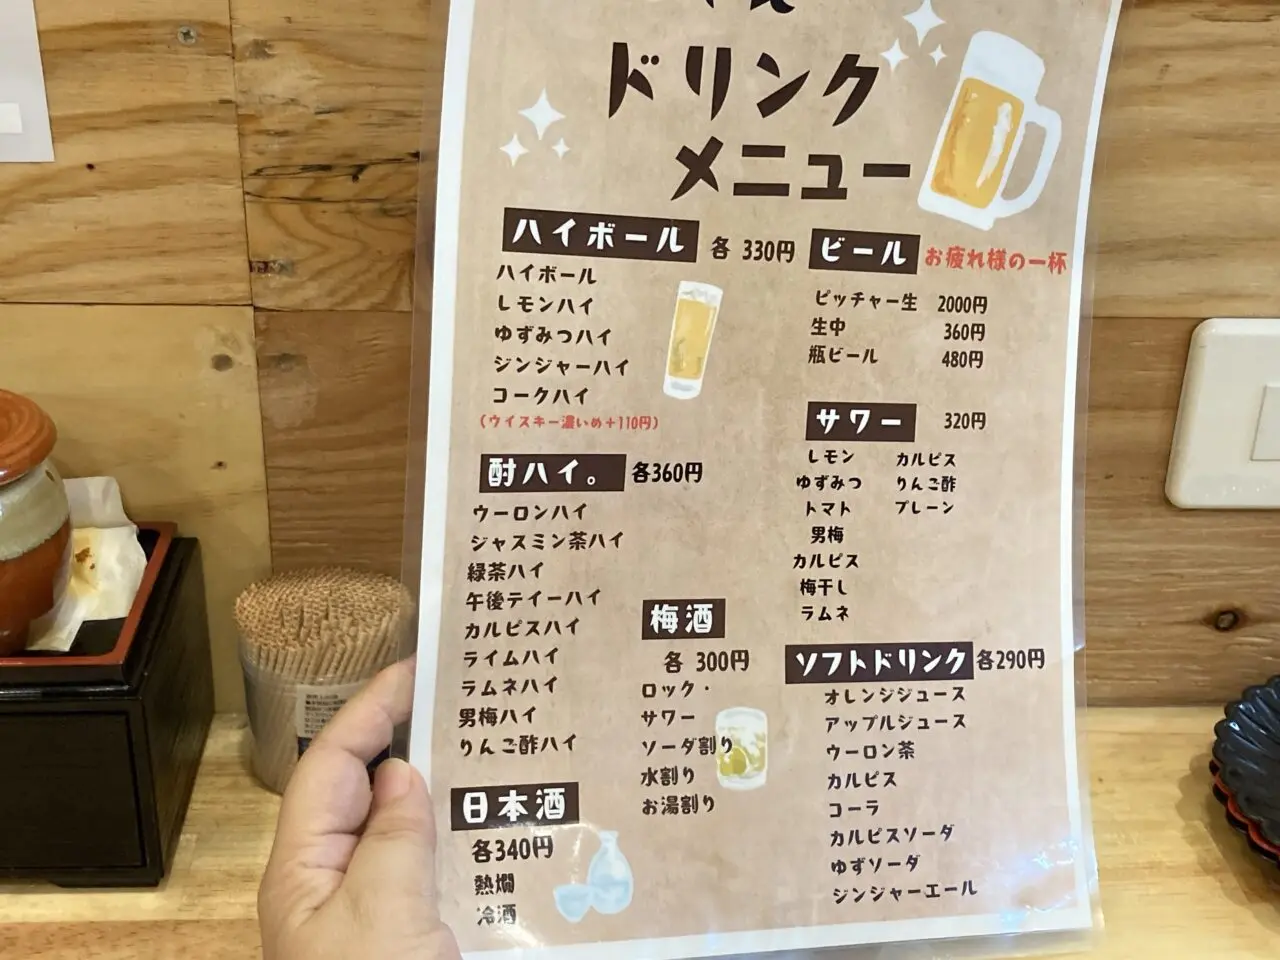 ドリンク
メニュー
ハイボール 各 330円
ハイボール
レモンハイ
ゆずみつハイ
ジンジャーハイ
コークハイ
(ウイスキー濃いめ+110円)
酎ハイ。 各360円
ウーロンハイ
ジャスミン茶ハイ
緑茶ハイ
午後ティーハイ
カルピスハイ
ライムハイ
ラムネハイ
男梅ハイ
りんご酢ハイ
日本酒
各340円
熱燗
冷酒
梅酒
各 300円
ロック・
サワー
ソーダ割り
水割り
お湯割り
ビール お疲れ様の一杯
ピッチャー生 2000円
生中 360円
瓶ビール 480円
サワー 320円
レモン カルピス
ゆずみつ りんご酢
トマト プレーン
男梅
カルピス
梅干し
ラムネ
ソフトドリンク 各290円
オレンジジュース
アップルジュース
ウーロン茶
カルピス
コーラ
カルピスソーダ
ゆずソーダ
ジンジャーエール